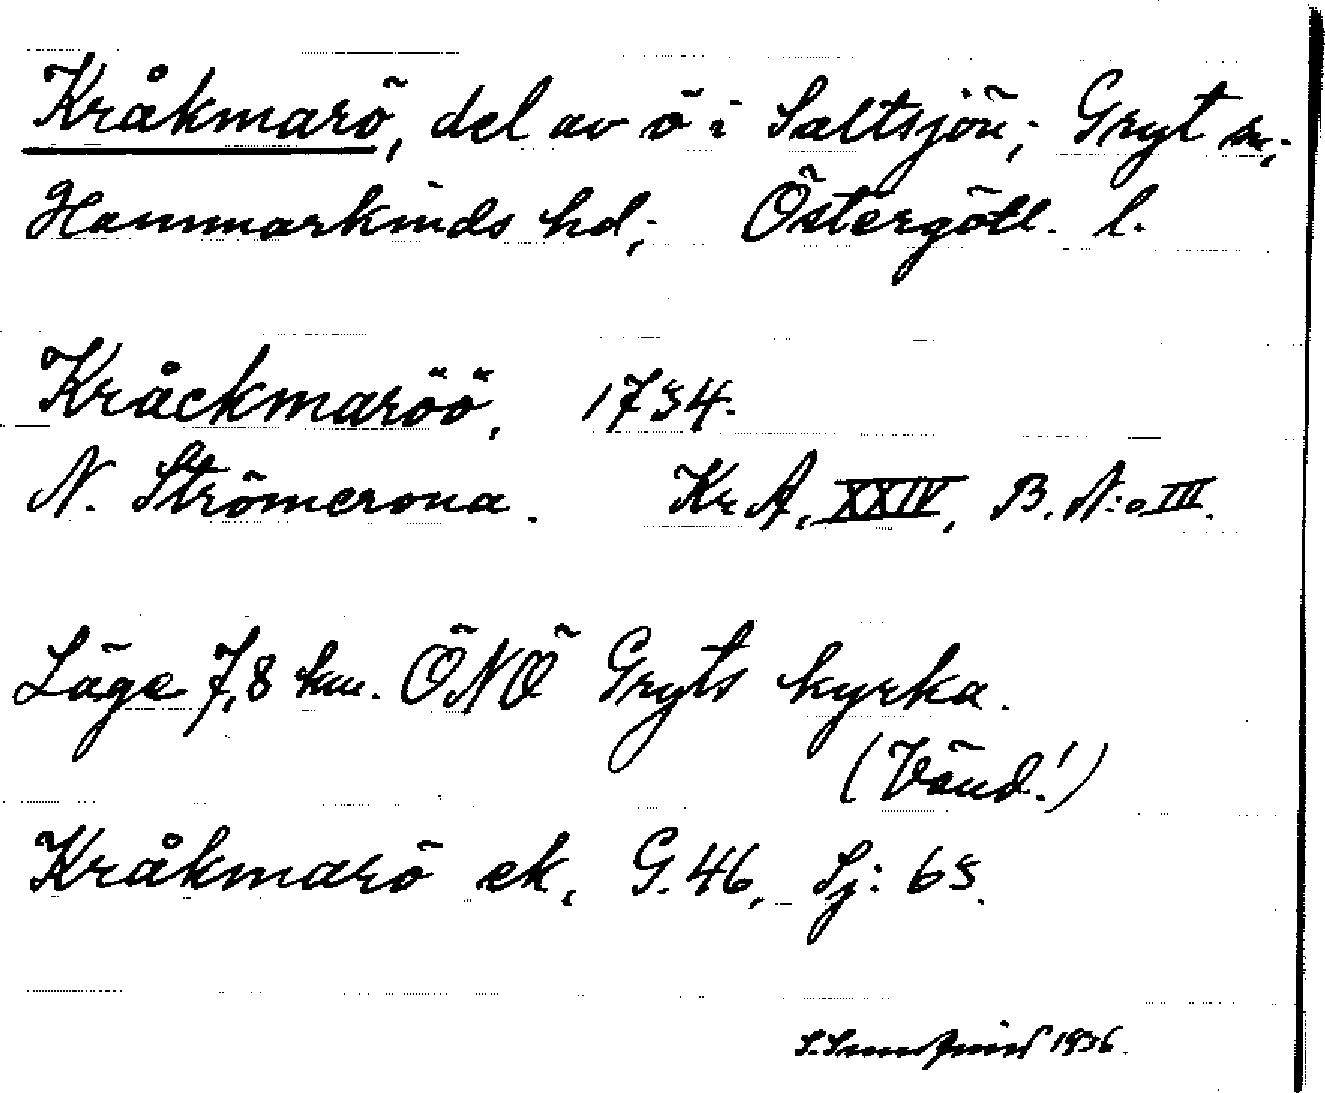 Kråkmarö, del av ö i Saltsjön; Gryt sn;
Hammarkinds hd; Östergötl. l.
Kråckmaröö, 1734.
N. Strömcrona. Kr A, XXIV, B. N:o III.
Läge 7,8 km. ÖNÖ Gryts kyrka.
(Vänd!)
Kråkmarö ek, G. 46, Sj: 63.
1936.